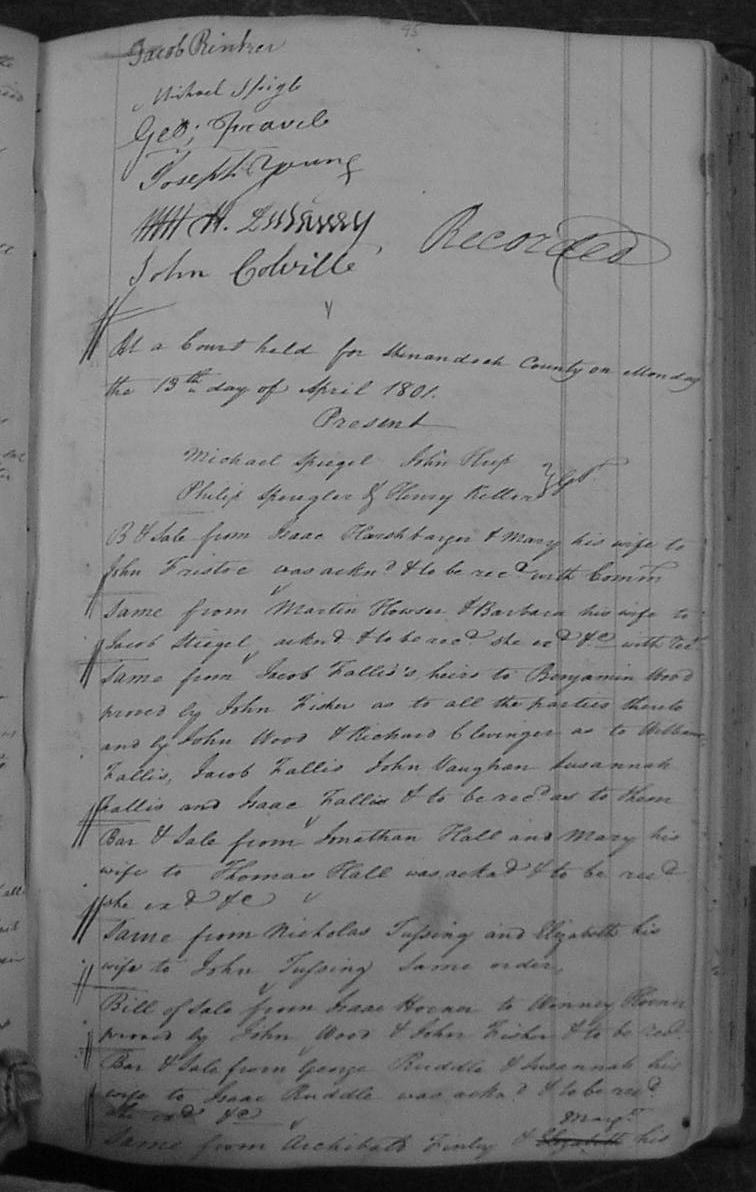 95
Jacob Rinker
Michael Speigle
Geo; Fravel
Joseph Young
H.
John Colville
Recorded
At a Court held for Shenandoah County on Monday
the 13th day of April 1801.
Present
Michael Spiegel John Hup
Philip Spengler & Henry Keller Gt.
B & Sale from Isaac Harshbarger & Mary his wife to
John Fristoe was acknd & to be recd with Commn
Same from Martin Howser & Barbara his wife to
Jacob Stiegel acknd & to be recd she exd &c with
Same from Jacob Fallis's heirs to Benjamin Wood
proved by John Fisher as to all the parties thereto
and by John Wood & Richard Clevinger as to William
Fallis, Jacob Fallis John Vaughan Susannah
Fallis and Isaac Fallis & to be recd as to them
Bar & Sale from Jonathan Hall and Mary his
wife to Thomas Hall was acknd & to be recd
she exd &c
Same from Nicholas Tussing and Elizabeth his
wife to John Tussing Same order,
Bill of Sale from Isaac Hoener to Winney Hoener
proved by John Wood & John Fisher & to be recd.
Bar & Sale from George Ruddle & Susannah his
wife to Isaac Ruddle was acknd & to be recd
she exd &c
Margt
Same from Archibald Finley & Elizabeth his